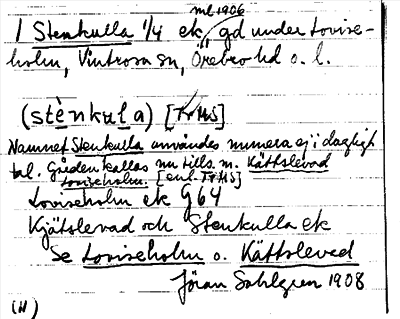 ml 1906
1 Stenkulla 1/4 ek, gd under Lovise-
holm, Vintrosa sn, Örebro hd o. l.
(stènkuḷa) [TrHS]
Namnet Stenkulla användes numera ej i dagligt
tal. Gården kallas nu tills. m. Kättsleved
Loviseholm. [enl. TrHS]
Loviseholm ek G64
Kjätslevad och Stenkulla ek
Se Loviseholm o. Kättsleved
Jöran Sahlgren 1908
(H)